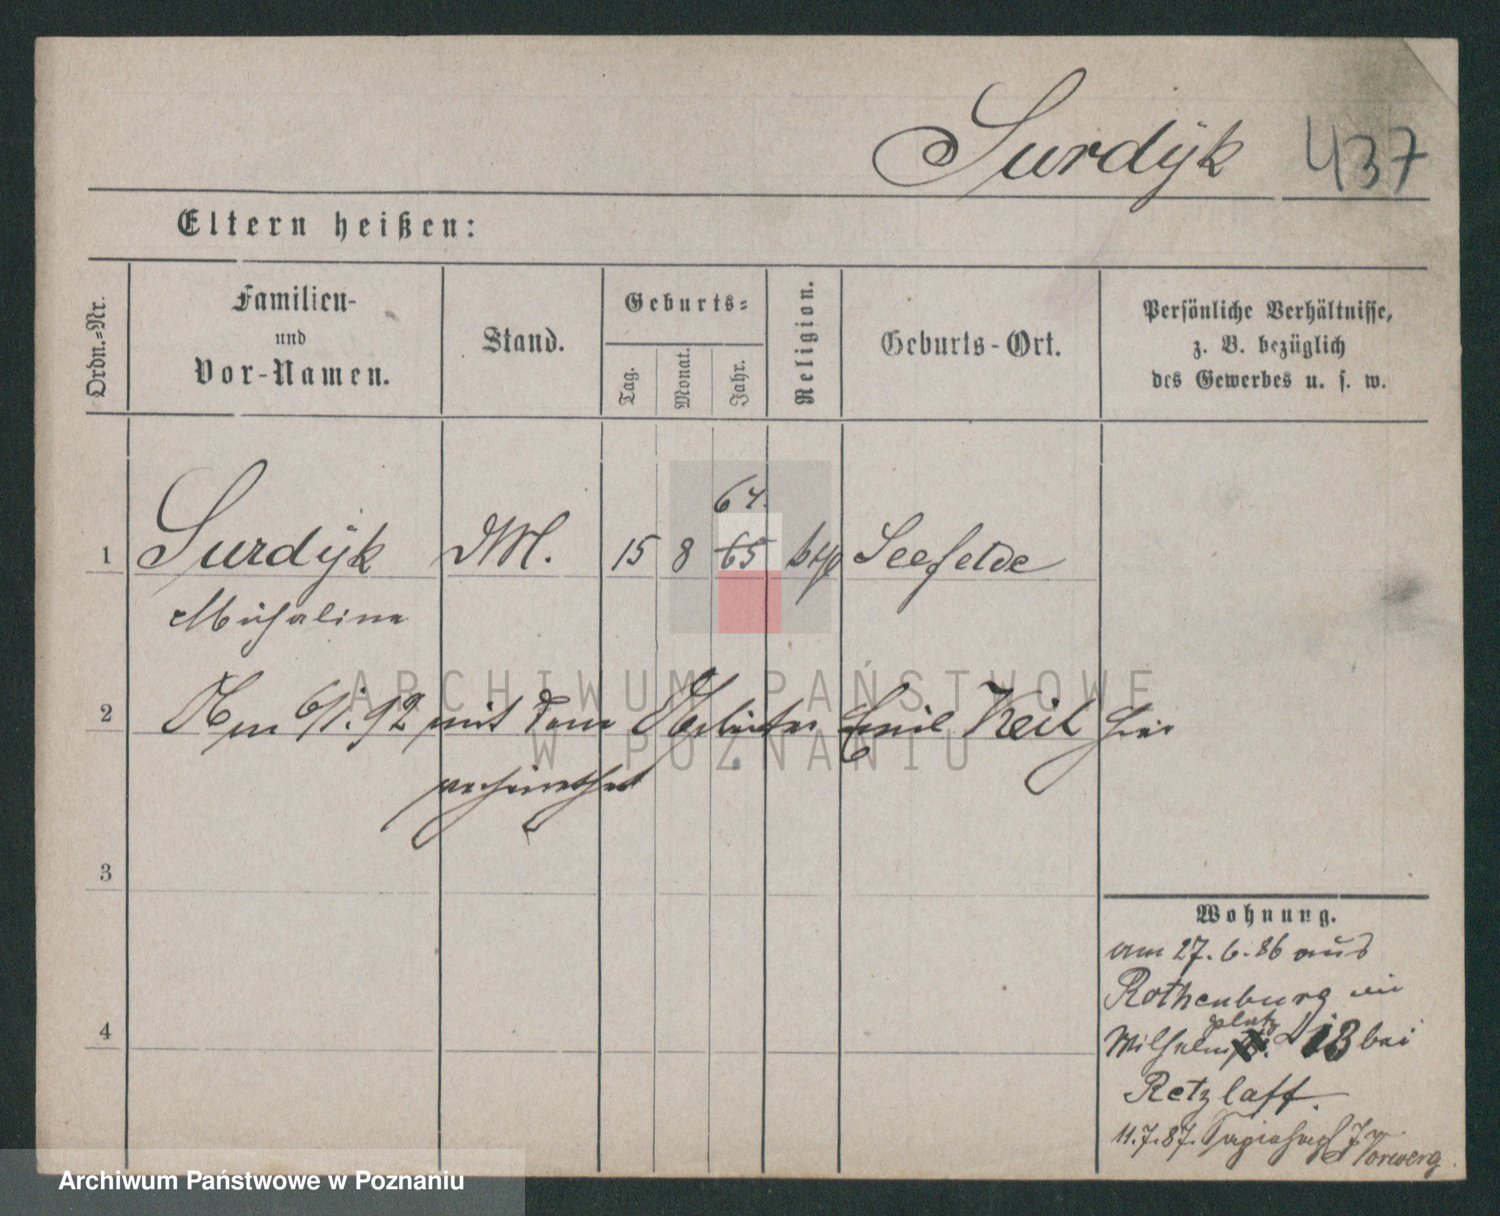 Surdyk 437
Eltern heißen:
Ordn.-Nr.
Familien-
und
Vor-Namen.
Stand.
Geburts-
Tag.
Monat.
Jahr.
Religion.
Geburts-Ort.
Persönliche Verhältnisse,
z. B. bezüglich
des Gewerbes u. s. w.
64.
1 Surdyk DM. 15 8 65 kth Seefelde
Michalina
2 Am 6/1.92 mit dem Arbeiter Emil Keil hier
verheirathet
3
4
Wohnung.
am 27.6.86 aus
Rothenburg in
platz
Wilhelm 13 bei
Retzlaff.
11.7.87. J. v.
Vorwerg
ARCHIWUM PAŃSTWOWE
W POZNANIU
Archiwum Państwowe w Poznaniu